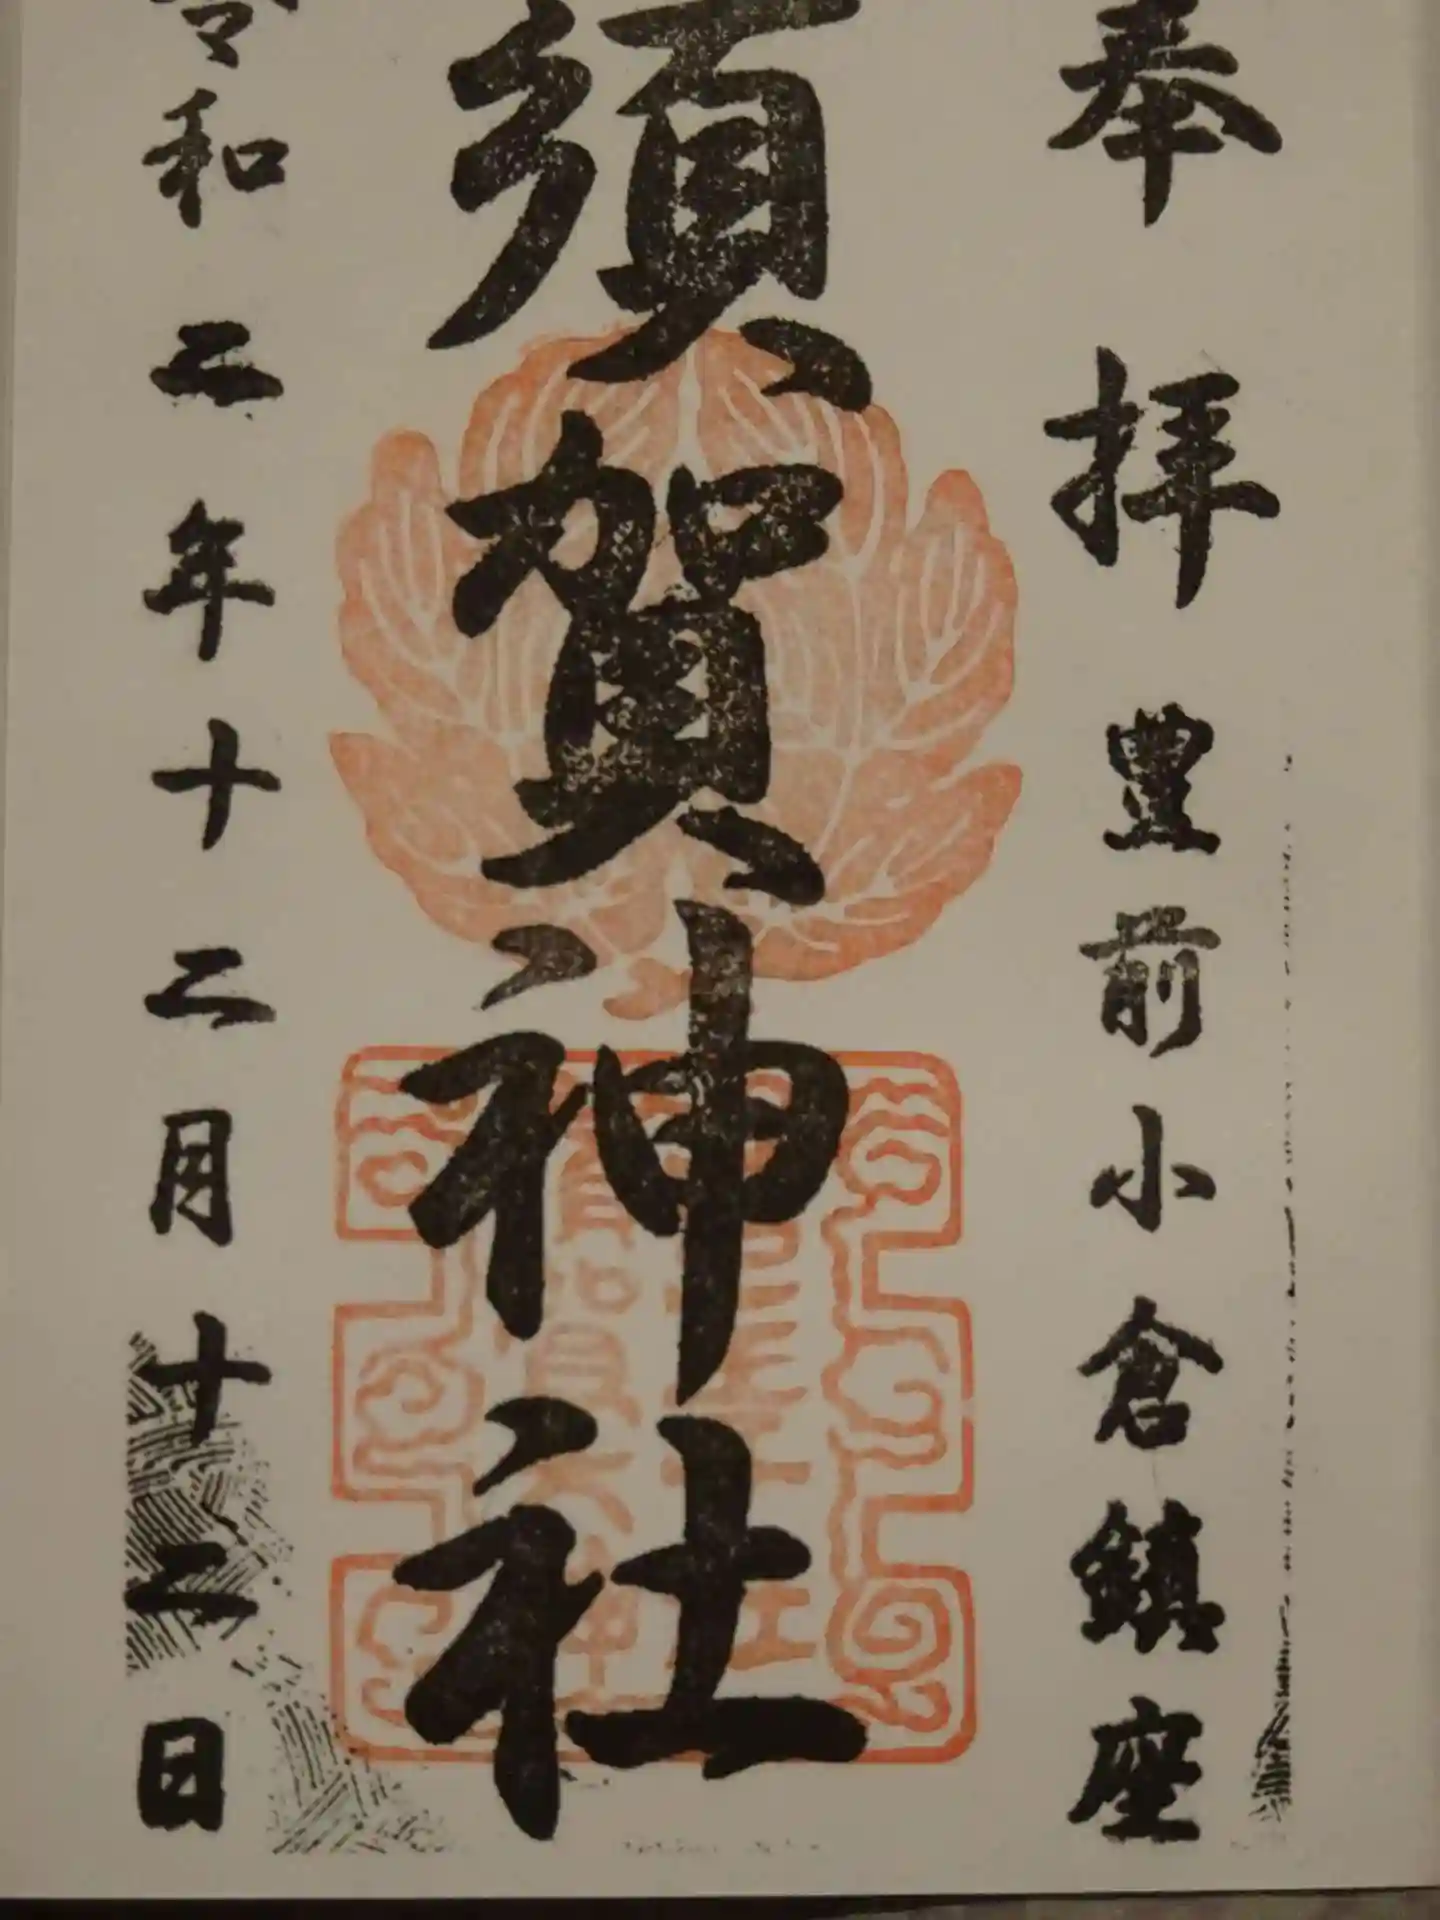 奉拝 豊前小倉鎮座
須賀神社
令和二年十二月十二日